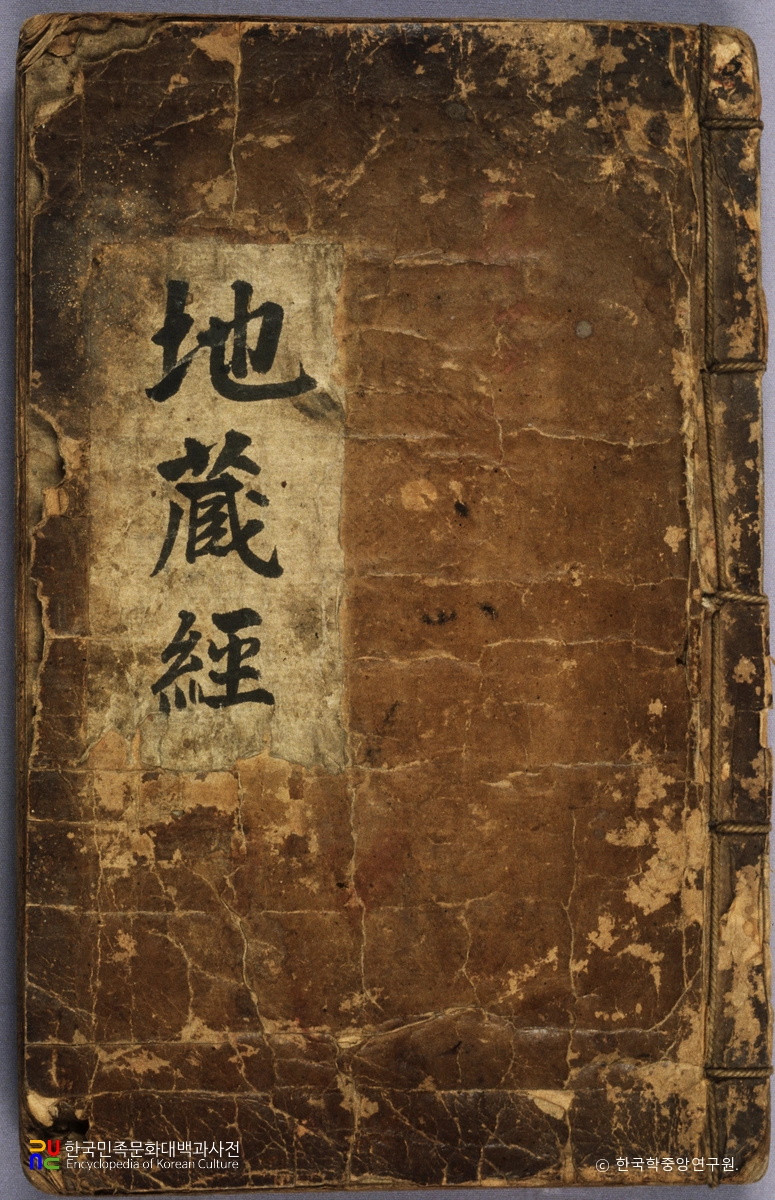 地藏經
한국민족문화대백과사전
Encyclopedia of Korean Culture
© 한국학중앙연구원.